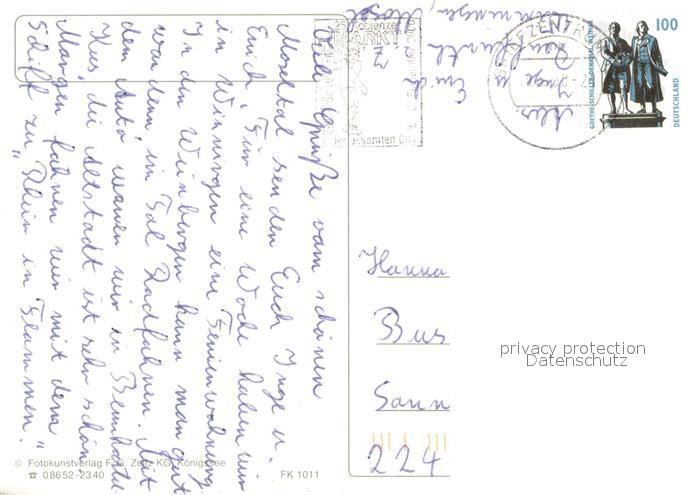 Viele Grüße vom schönen
Moseltal senden Euch Inge u.
Erich. Für eine Woche haben wir
in Winningen eine Ferienwohnung.
In den Weinbergen kann man gut
wandern im Tal Radfahren. Mit
dem Auto waren wir in Bernkastel
Kues die Altstadt ist sehr schön
Morgen fahren wir mit dem
Schiff zu „Rhein in Flammen."
Inge u.
Erich
MARKT
gesamten
BRIEFZENTRUM
GOETHE-SCHILLER-DENKMAL WEIMAR
100
DEUTSCHLAND
Hanna
Bus
Sann
224
privacy protection
Datenschutz
© Fotokunstverlag F.G. Zeitz KG, Königssee
☎ 08652-2340
FK 1011